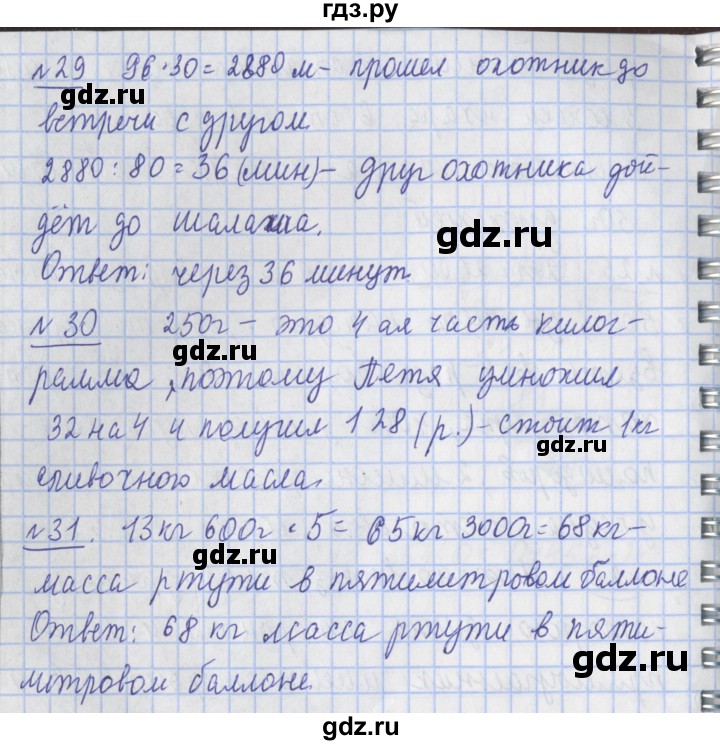 гдз.ру
№29 96·30=2880 м- прошел охотник до
gdz.ru
gdz.ru
встречи с другом
2880:80=36(мин)- друг охотника дой-
дёт до шалаша.
gdz.ru
Ответ: через 36 минут.
№30 250г – это 4 ая часть килог-
gdz.ru
рамма, поэтому Петя умножил
32 на 4 и получил 128 (р.)- стоит 1кг
gdz.ru
сливочного масла.
gdz.ru
№31. 13кг 600г · 5 = 65кг 3000г = 68кг-
масса ртути в пятилитровом баллоне
Ответ: 68 кг масса ртути в пяти-
gdz.ru
gdz.ru
метровом баллоне.
gdz.ru